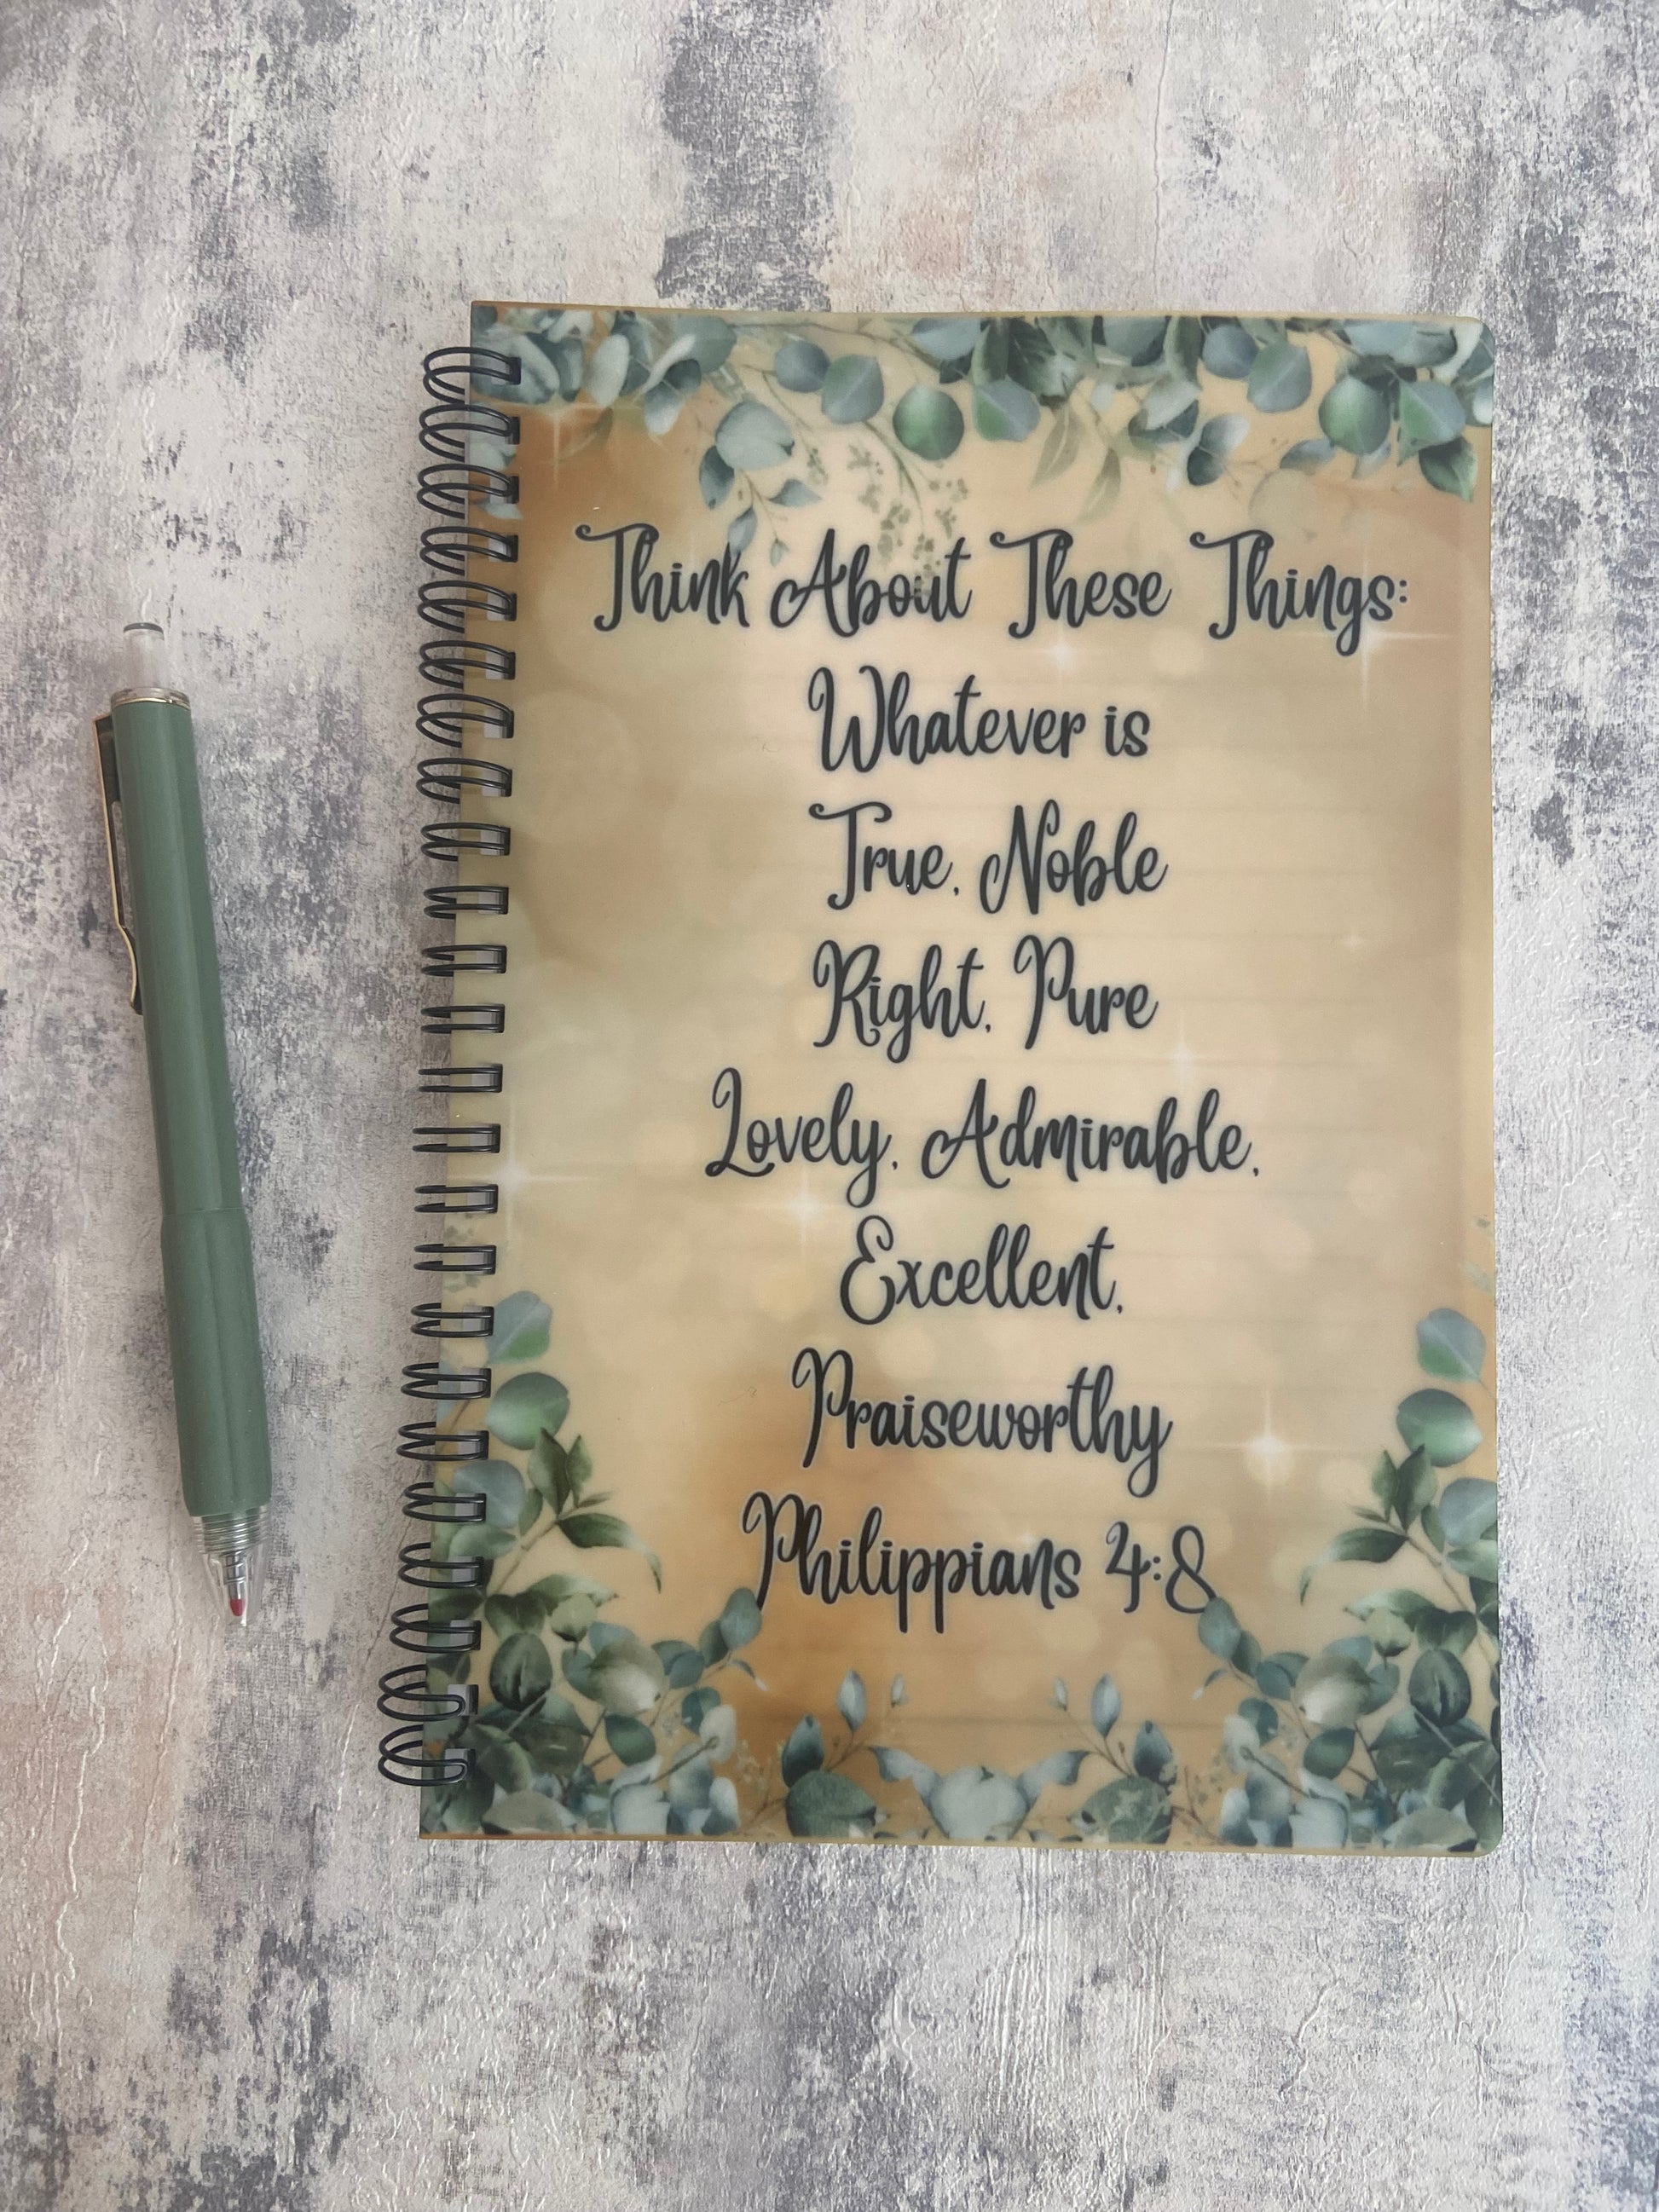 Think About These Things:
Whatever is
True, Noble
Right, Pure
Lovely, Admirable,
Excellent,
Praiseworthy
Philippians 4:8